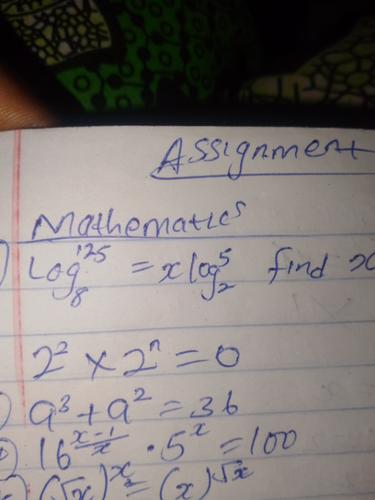 Assignment
Mathematics
Log₈¹²⁵ = x log₂⁵ find x
2² × 2ⁿ = 0
a³ + a² = 36
16^((x-1)/x) · 5^x = 100